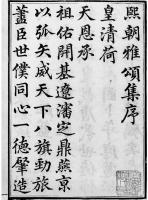 熙朝雅頌集序
皇清荷
天恩承
祖佑開基遼瀋定鼎燕京
以弧矢威天下八旗勁旅
藎臣世僕同心一德肇造